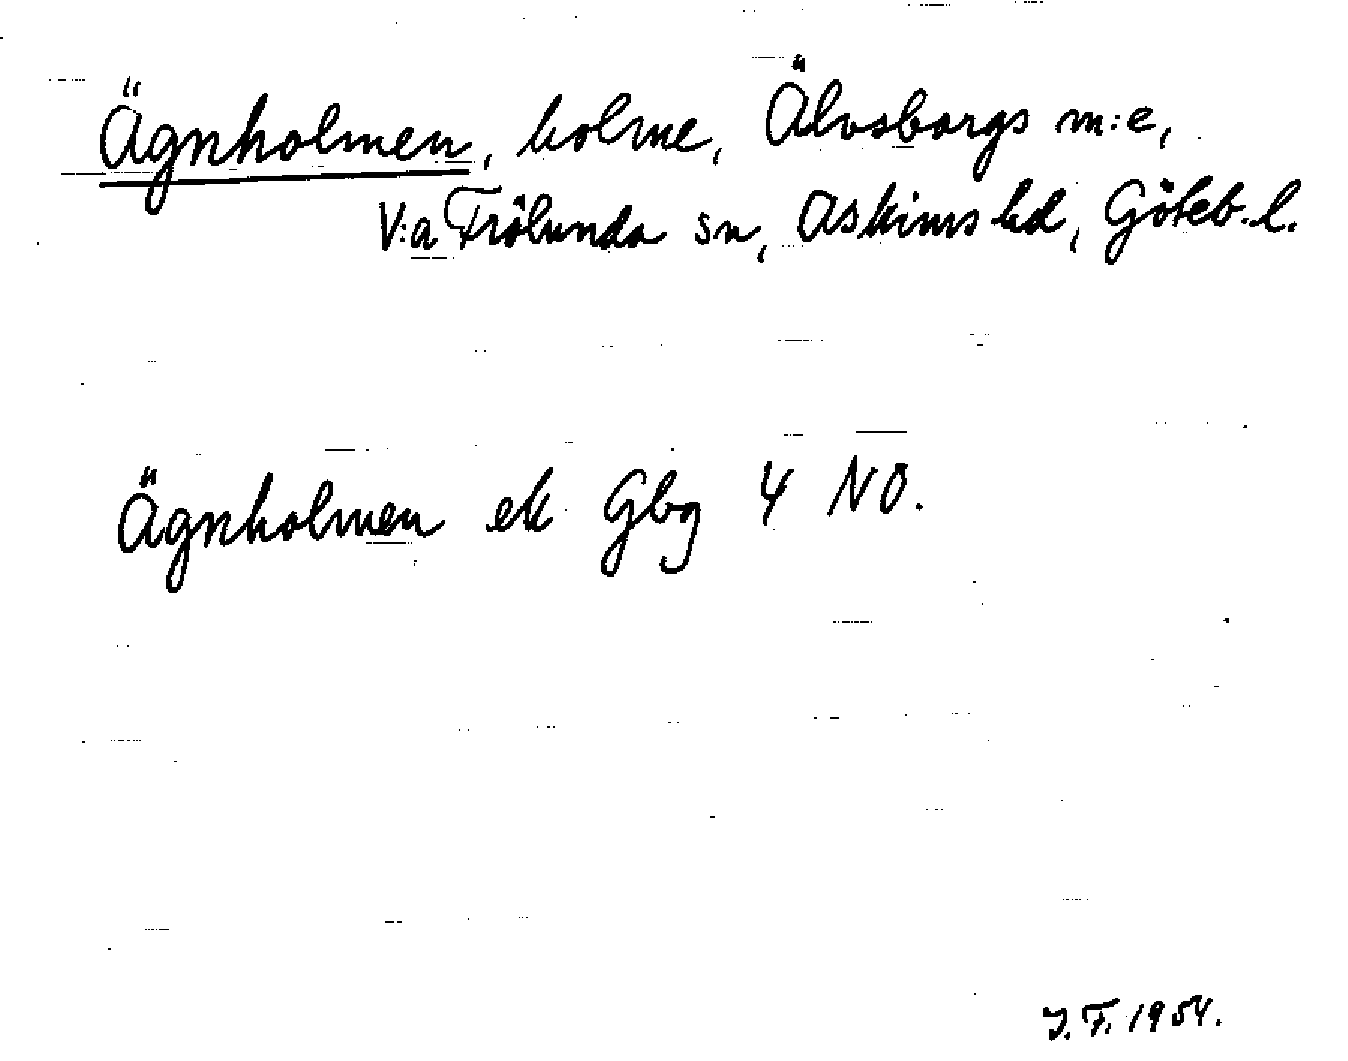 Ägnholmen, holme, Älvsborgs m:e,
V:a Frölunda sn, Askims hd, Göteb. l.
Ägnholmen ek Gbg 4 NO.
J.F. 1954.